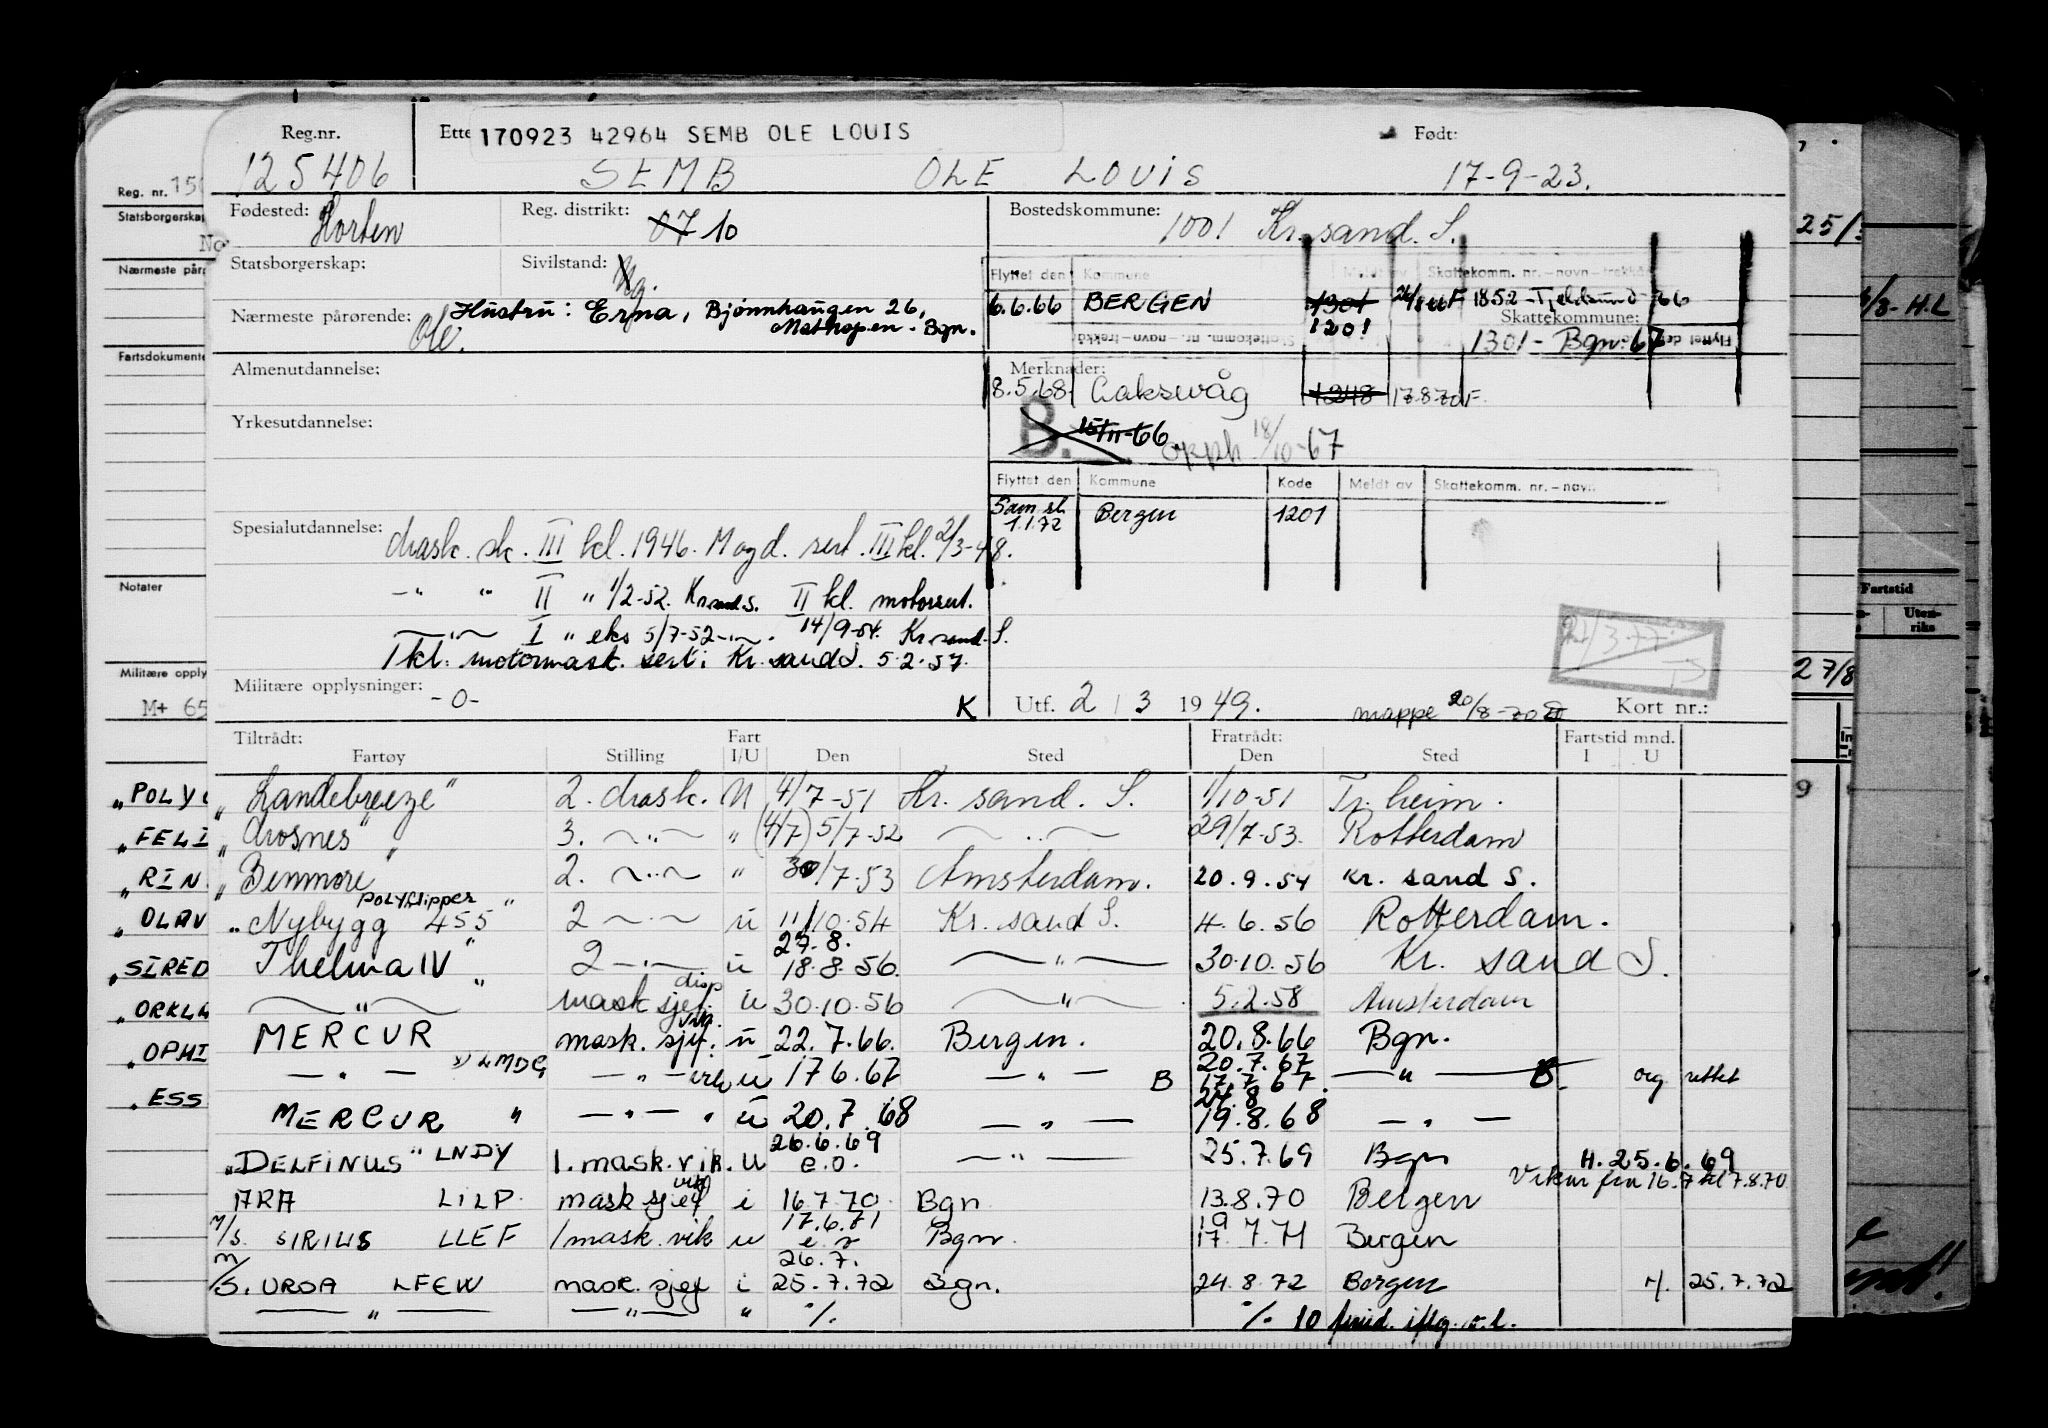 Reg.nr. Ette 170923 42964 SEMB OLE LOUIS Født:
125406 SEMB OLE LOUIS 17-9-23.
Fødested: Horten Reg. distrikt: 07 10 Bostedskommune: 1001 Kr. sand. S.
Statsborgerskap: Sivilstand: Ug.
Flyttet den Kommune Meldt av Skattekomm. nr. – navn – trekkår
6.6.66 BERGEN 1301 F 1852 – Tjeldsund 66
1201 Skattekommune:
1301 - Bgn. 67
Nærmeste pårørende: Hustru: Erna, Bjønnhaugen 26,
Mathopen - Bgn.
Almenutdannelse: Merknader:
8.5.68 Laksevåg 1248 17.8.70 F.
Yrkesutdannelse: B. 15/11-66 opph 18/10-67
Flyttet den Kommune Kode Meldt av Skattekomm. nr. – navn
Sam.sl. 1.1.72 Bergen 1201
Spesialutdannelse: Mask. sk. III kl. 1946. Magd. sert. III kl. 2/3-48.
-"- " II " 1/2-52. Kr.sand.S. II kl. motorsert.
-"- I " eks 5/7-52 -"-. 14/9-54. Kr.sand.S.
I kl. motormask. sert: Kr.sand S. 5.2.57.
Militære opplysninger: -0- K Utf. 2 / 3 1949. mappe 20/8-70 Kort nr.:
Tiltrådt: Fart Fratrådt: Fartstid mnd.
Fartøy Stilling I/U Den Sted Den Sted I U
"Landebreeze" 2. Mask. U 4/7-51 Kr. sand. S. 1/10-51 Tr. heim.
"Mosnes" 3. -"- " (4/7) 5/7-52 -"- 29/7-53. Rotterdam
"Benmore" 2. -"- " 30/7-53 Amsterdam. 20.9.54 Kr. sand S.
Polyclipper
"Nybygg 455" 2 -"- u 11/10-54 Kr. sand S. 4.6.56 Rotterdam.
27.8.
Thelma IV" 2 -"- u 18.8.56. -"- 30.10.56 Kr. sand S.
-"- mask sjef. disp u 30.10.56 -"- 5.2.58 Amsterdam
MERCUR mask. sjef. vik. u 22.7.66. Bergen. 20.8.66 Bgn.
20.7.67
-"- LMDG -"- vik u 17 6.67 -"- B 17.7.67. -"- B. og rettet
24.8
MERCUR " -"- " u 20.7.68 -"- 19.8.68 -"-
26.6.69
"DELFINUS" LNDY 1. mask. vik. u e.o. -"- 25.7.69 Bgn H. 25.6.69
Vikar fra 16.7 til 7.8.70
ARA LILP. mask sjef vik i 16 7.70 Bgn 13.8.70 Bergen
17.6.71 19
M/S. SIRIUS LLEF 1 mask. vik u Bgn. 17.7.71 Bergen
26.7.
M/S. URSA LFEW mask. sjef i 25.7.72 Bgn. 24.8.72 Bergen 25.7.72
-"- -"- " %. %. 10
Reg. nr. 150
Statsborgerskap
No
Nærmeste pårø
Fartsdokumente
Notater
Militære opply
M+ 65
"POLY
"FELI
"RIN
"OLAV
"SIRED
"ORKLA
"OPHI
"ESS
25/
/8- H.L
Fartstid
Uten-
riks
27/8
9